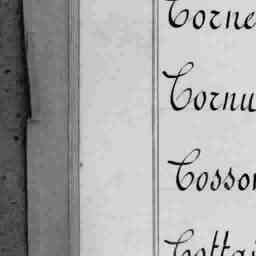 Corne
Cornu
Cosso
Cotta